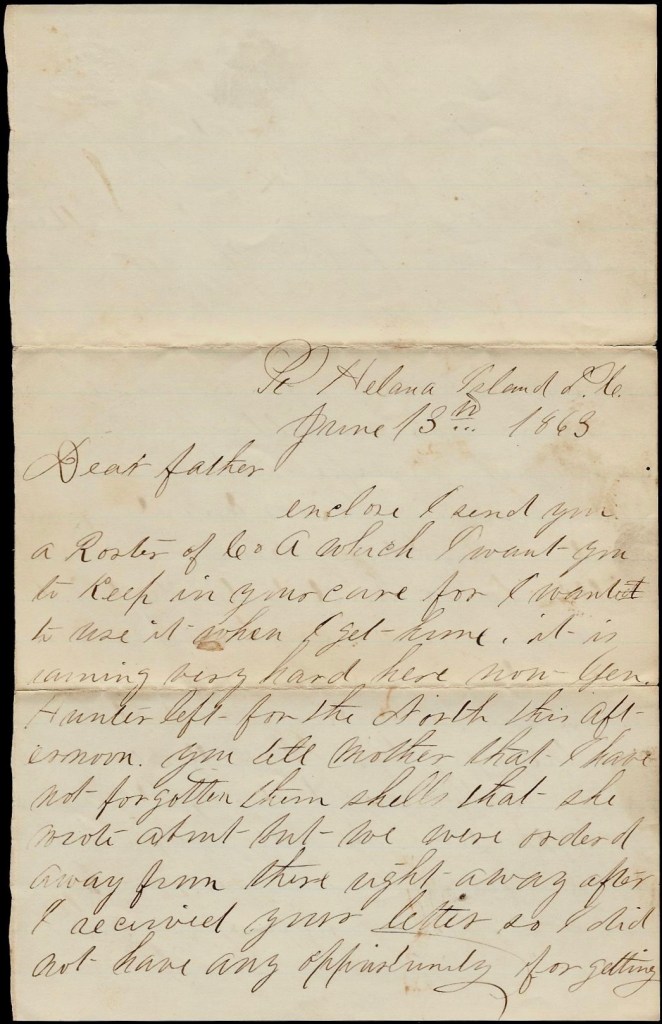 St Helana Island S.C.
June 13th 1863
Dear father
enclose I send you
a Roster of Co A which I want you
to keep in your care for I want
to use it when I get home. it is
raining very hard here now Gen.
Hunter left for the North this aft-
ernoon. you tell Mother that I have
not forgotten them shells that she
wrote about but we were orderd
away from there right away after
I received your letter so I did
not have any oppirtunity for getting